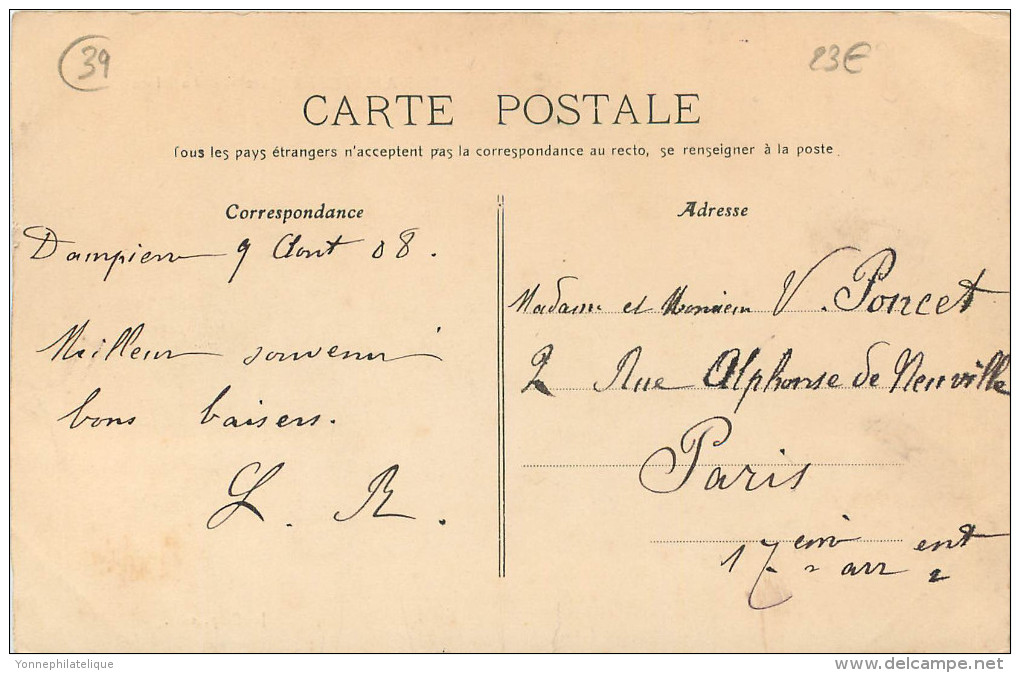 39
23€
CARTE POSTALE
Tous les pays étrangers n'acceptent pas la correspondance au recto, se renseigner à la poste.
Correspondance
Dampierre 9 Aout 08.
Meilleur souvenir
bons baisers.
L. R.
Adresse
Madame et Monsieur V. Poncet
2 Rue Alphonse de Neuville
Paris
17 em arr ent
Yonnephilatelique
www.delcampe.net